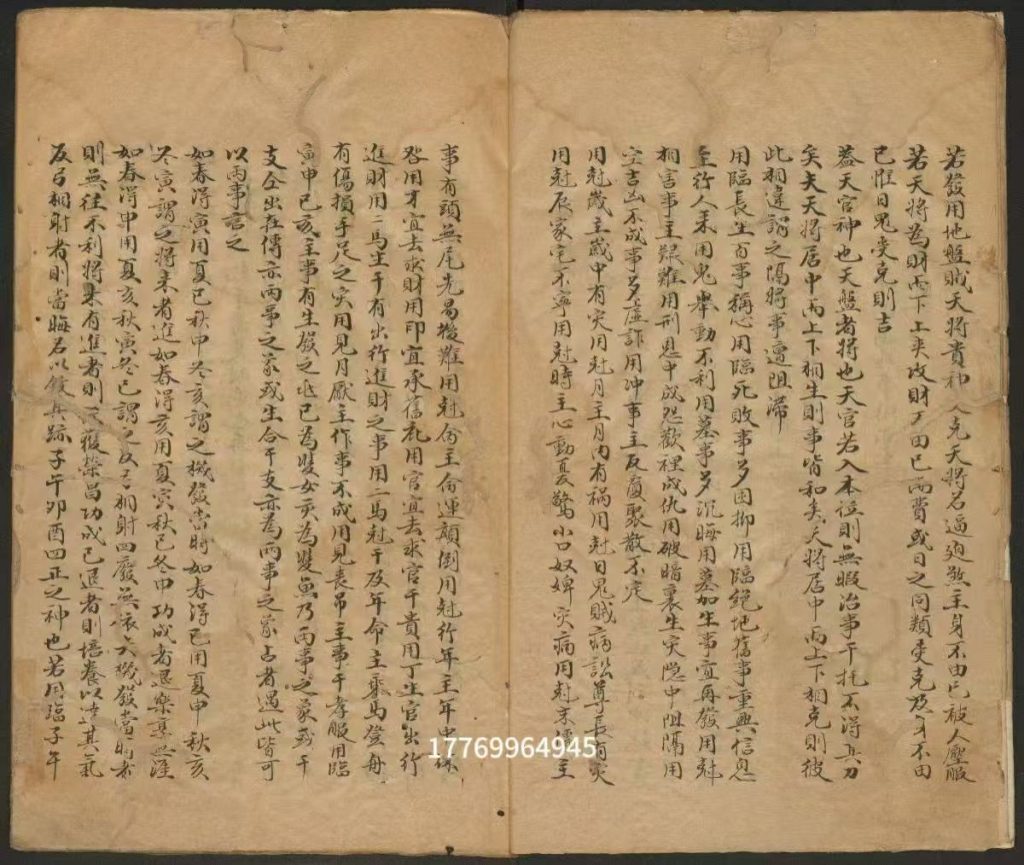 若發用地盤賊天將貴神人克天將名逼迫煞主身不由己被人壓服
若天將為財而下上夾攻財不由己而費或日之同類受克及身不由
已惟日鬼夾克則吉
蓋天官神也天盤者將也天官若入本位則無暇治事干托不得其力
矣夫天將居中而上下相生則事皆和矣天將居中而上下相克則彼
此相違謂之隔將事遭阻滞
用臨長生百事稱心用臨死敗事多困抑用臨絕地舊事重興信息
至行人来用鬼舉動不利用墓事多沉晦用墓加生事宜再發用尅
相害事主艱難用刑恩中成怨歡裡成仇用破暗裏生灾隐中阻隔用
空吉凶不成事多虛詐用冲事主反覆聚散不定
用尅歲主歲中有灾用尅月主月內有禍用尅日鬼賊病訟尊長有灾
用尅辰家宅不寧用尅時主心動憂驚小口奴婢灾病用尅末傳主
事有頭無尾先易後難用尅命主命運顛倒用尅行年主年中
用才宜去求財用印宜承舊用官宜去求官干貴用丁生官出行
進財用二馬生干有出行進財之事用二馬尅干及年命主乘馬登舟
有傷損手足之灾用見月厭主作事不成用見喪吊主事干孝服用臨
寅申巳亥主事有生發之
巳為雙女亥為雙魚乃兩事之象或干
支仝出在傳亦兩事之象或生合干支亦為兩事之象占者遇此皆可
以兩事言之
如春得寅用夏巳秋申冬亥謂之機發當時如春得巳用夏申秋亥
冬寅謂之將来者進如春得亥用夏寅秋巳冬申功成者退
如春得申用夏亥秋寅冬巳謂之反弓相射四廢無依大機發當時者
則無往不利將来有進者則獲榮昌功成已退者則培養以達其氣
反弓相射者則當晦名以斂其跡子午卯酉四正之神也若用臨子午
17769964945